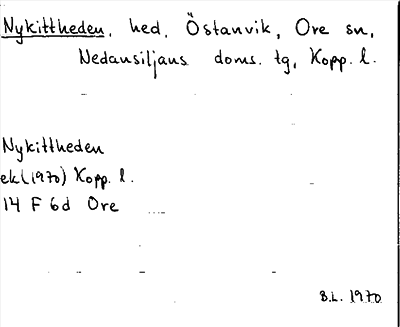 Nykittheden, hed, Östanvik, Ore sn,
Nedansiljans doms. tg, Kopp. l.
Nykittheden
ekl(1970) Kopp. l.
14 F 6d Ore
B.L. 1970